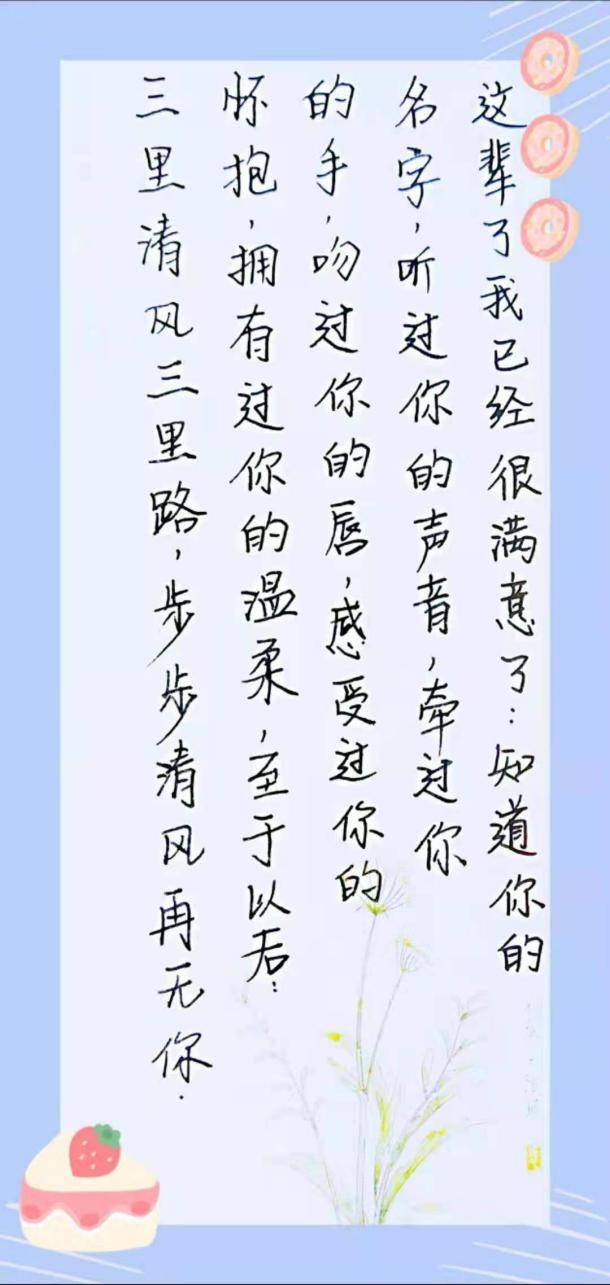 这辈了我已经很满意了：知道你的
名字，听过你的声音，牵过你
的手，吻过你的唇，感受过你的
怀抱，拥有过你的温柔，至于以后：
三里清风三里路，步步清风再无你．